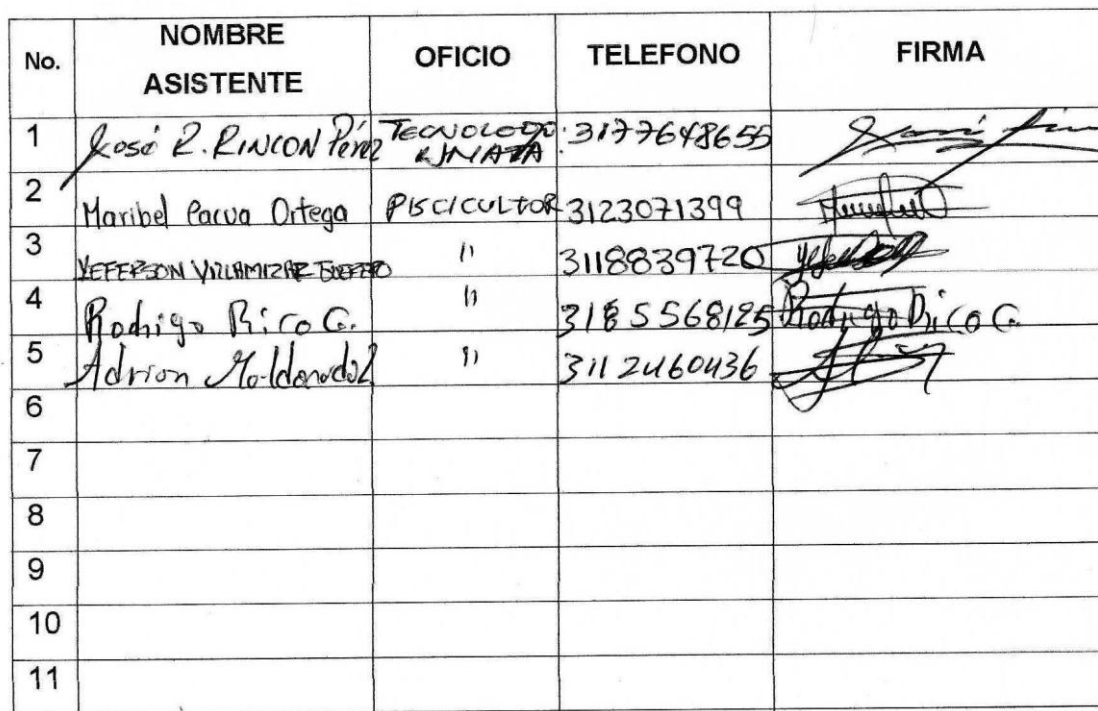 No. NOMBRE ASISTENTE OFICIO TELEFONO FIRMA
1 José R. RINCON Pérez TECNOLOGO 3177648655
2 Maribel Pacua Ortega PISCICULTOR 3123071399
3 YEFERSON VILLAMIZAR 11 3118839720
4 Rodrigo Rico G. 11 3185568125 Rodrigo Rico G.
5 Adrian Maldonado 11 3112460436
6
7
8
9
10
11